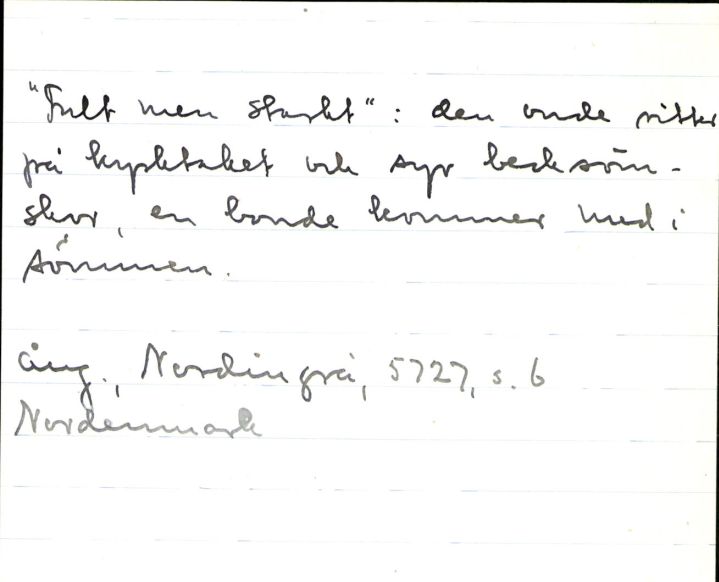 "Fult men starkt": den onde sitter
på kyrktaket och syr becksöm-
skor, en bonde kommer med i
sömmen.
Ång., Nordingrå, 5727, s. 6
Nordenmark